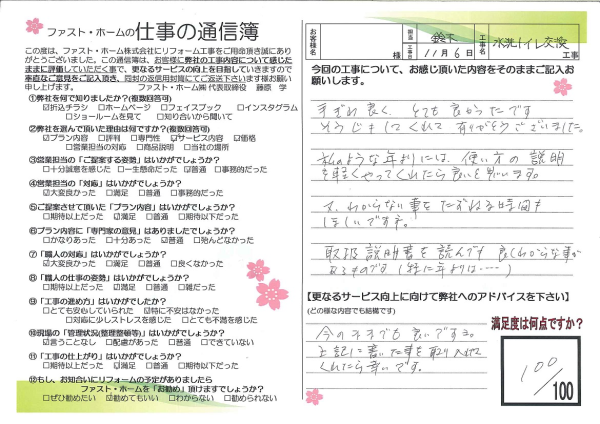 ファスト・ホームの仕事の通信簿
この度は、ファスト・ホーム株式会社にリフォーム工事をご用命頂き誠にあり
がとうございました。この通信簿は、お客様に弊社の工事内容について感じた
ままに評価していただく事で、更なるサービスの向上を目指していきますので
率直なご意見をご記入頂き、同封の返信用封筒にてご返送下さいます様お願い
申し上げます。 ファスト・ホーム㈱ 代表取締役 藤原 学
①弊社を何で知りましたか?(複数回答可)
☑折込チラシ □ホームページ □フェイスブック □インスタグラム
□ショールームを見て □知り合いから聞いて
②弊社を選んで頂いた理由は何ですか?(複数回答可)
☑プラン内容 □評判 □専門性 ☑サービス内容 ☑価格
□営業担当の対応 □商品説明 □当社の場所
③営業担当の「ご提案する姿勢」はいかがでしょうか?
□十分誠意を感じた □一生懸命だった ☑普通 □事務的だった
④営業担当の「対応」はいかがでしょうか?
☑大変良かった □満足 □普通 □事務的だった
⑤ご提案させて頂いた「プラン内容」はいかがでしょうか?
□期待以上だった ☑満足 □普通 □期待以下だった
⑥プラン内容に「専門家の意見」はありましたでしょうか?
□かなりあった □十分あった ☑普通 □殆んどなかった
⑦「職人の対応」はいかがでしょうか?
☑大変良かった □満足 □普通 □良くなかった
⑧「職人の仕事の姿勢」はいかがでしょうか?
□期待以上だった ☑満足 □普通 □雑だった
⑨「工事の進め方」はいかがでしたか?
□とても安心していられた ☑特に不安はなかった
□対応に少しストレスを感じた □とても不満を感じた
⑩現場の「管理状況(整理整頓等)」はいかがでしょうか?
☑言うことなし □配慮があった □普通 □できていない
⑪「工事の仕上がり」はいかがでしょうか?
□期待以上だった ☑満足 □普通 □期待以下だった
⑫もし、お知合いにリフォームの予定がありましたら
ファスト・ホームを「お勧め」頂けますでしょうか?
□ぜひ勧めたい ☑勧めてもいい □わからない □勧められない
お客様名 様 担当 鈴木 工事日 11月6日 工事名 水洗トイレ交換 工事
今回の工事について、お感じ頂いた内容をそのままご記入お
願いします。
手ぎわ良く とても良かったです
そうじもしてくれて ありがとうございました。
私のような年よりには、使い方の説明
を軽くやってくれたら良いと思います。
又、わからない事をたずねる時間も
ほしいです。
取扱説明書を読んでも良くわからない事が
あるのです(特に年よりは……)
【更なるサービス向上に向けて弊社へのアドバイスを下さい】
(どの様な内容でも結構です)
今のままでも良いですよ。
上記に書いた事を取り入れて
くれたら幸いです。
満足度は何点ですか?
100/100